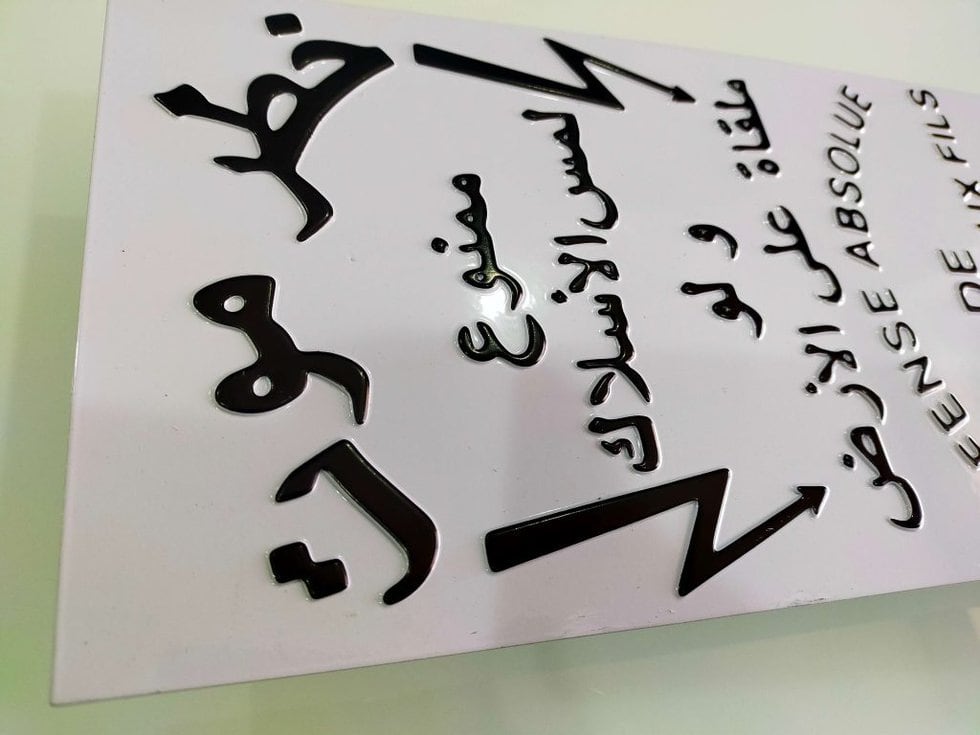 خطر موت
ممنوع
لمس الأسلاك
و لو
ملقاة على الأرض
FENSE ABSOLUE
DE FILS